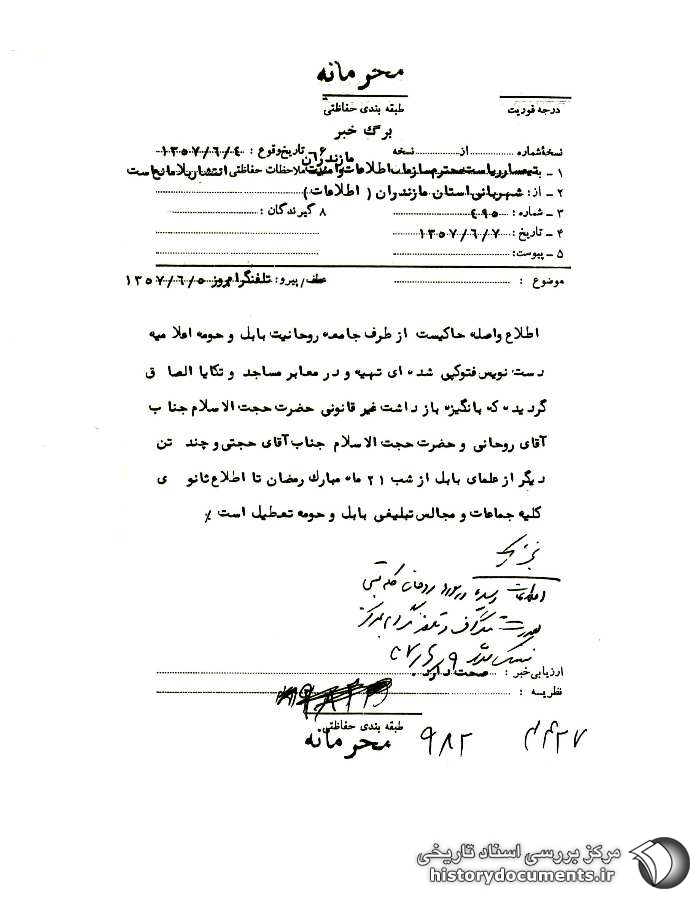 محرمانه
طبقه بندی حفاظتی
درجه فوریت
برگ خبر
نسخهٔ شماره از نسخه تاریخ وقوع : ۱۳۵۷/۶/۴
۱ ـ به تیمسار ریاست محترم سازمان اطلاعات و امنیت مازندران ملاحظات حفاظتی انتشار بلامانع است
۲ ـ از : شهربانی استان مازندران ( اطلاعات )
۳ ـ شماره : ۴۹۵ ۸ گیرندگان :
۴ ـ تاریخ : ۱۳۵۷/۶/۷
۵ ـ پیوست:
موضوع : عطف/پیرو: تلفنگرام روز ۱۳۵۷/۶/۵
اطلاع واصله حاکیست از طرف جامعه روحانیت بابل و حومه اعلامیه
دست نویس فتوکپی شده ای تهیه و در معابر مساجد و تکایا الصاق
گردیده که بانگیزه بازداشت غیر قانونی حضرت حجت الاسلام جناب
آقای روحانی و حضرت حجت الاسلام جناب آقای حجتی و چند تن
دیگر از علمای بابل از شب ۲۱ ماه مبارک رمضان تا اطلاع ثانوی
کلیه جماعات و مجالس تبلیغی بابل و حومه تعطیل است ٪
تلگراف و تلفنگرام بمرکز
۵۷/۶/۹
ارزیابی خبر : صحت دارد .
نظریه :
طبقه بندی حفاظتی
محرمانه
۹۸۲
مرکز بررسی اسناد تاریخی
historydocuments.ir